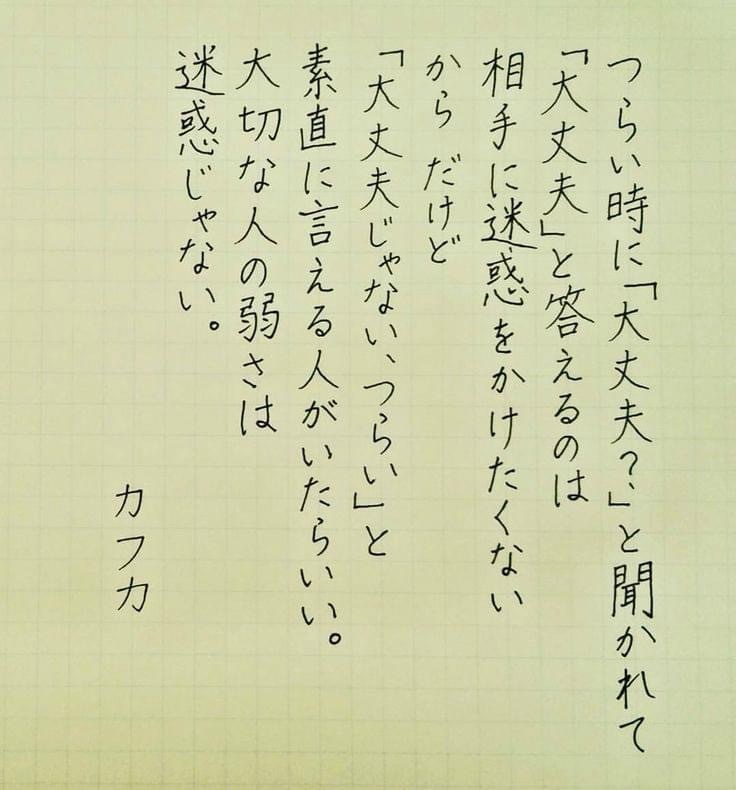 つらい時に「大丈夫?」と聞かれて
「大丈夫」と答えるのは
相手に迷惑をかけたくない
から だけど
「大丈夫じゃない、つらい」と
素直に言える人がいたらいい。
大切な人の弱さは
迷惑じゃない。
カフカ